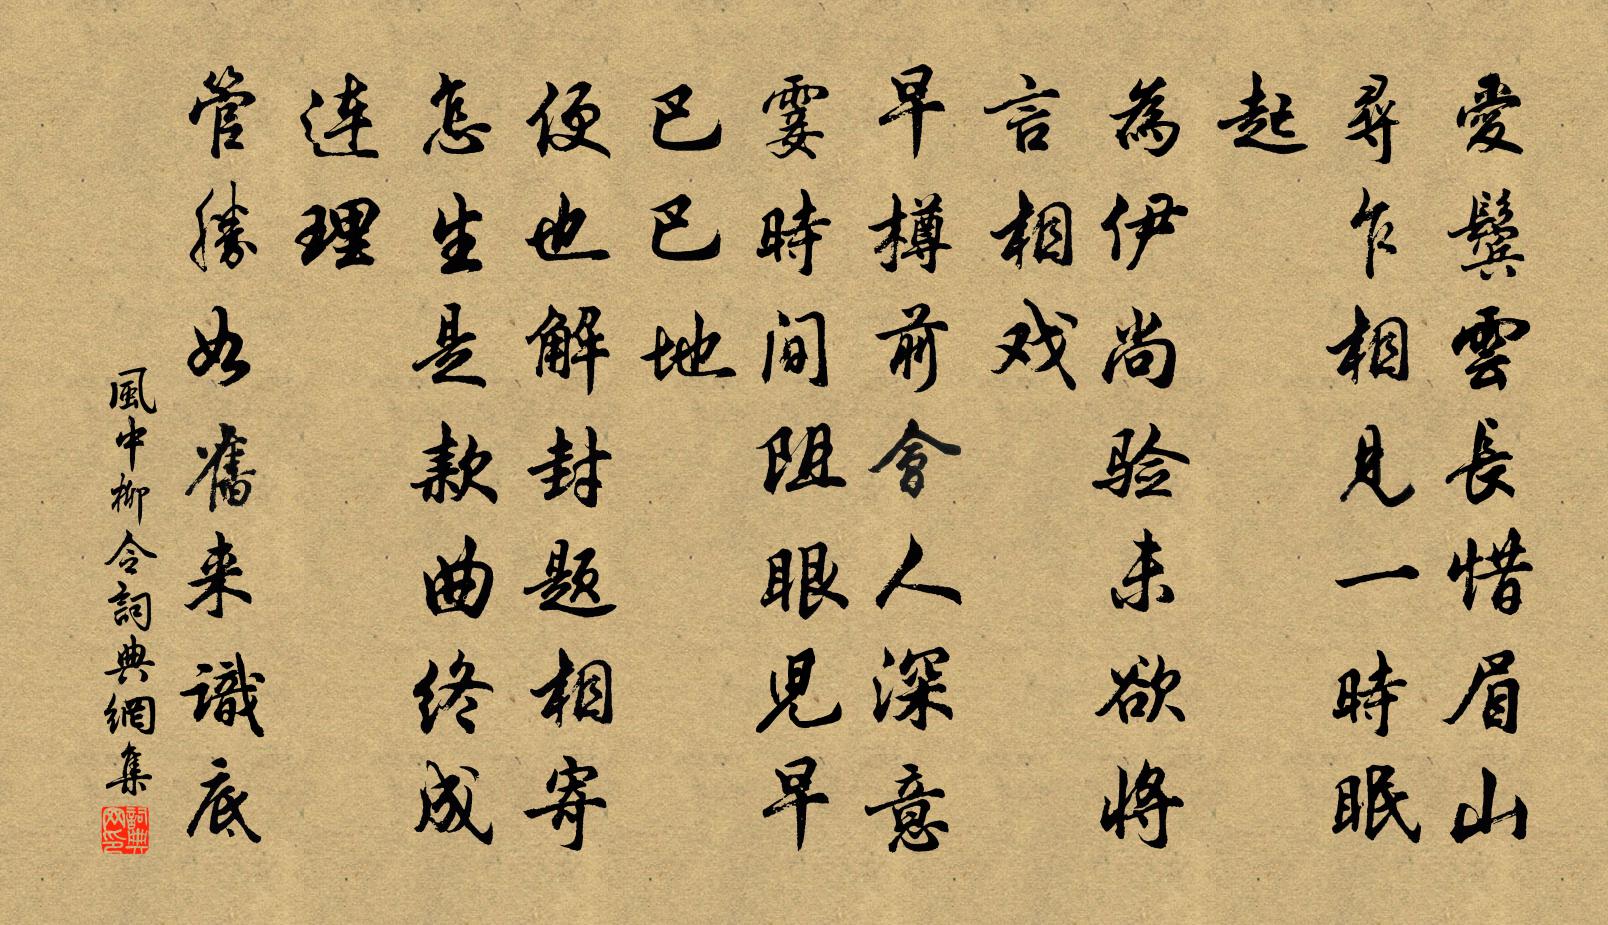 愛鬓雲長惜眉山
尋乍相見一時眠
起
為伊尚验未欲將
言相戏
早樽前會人深意
霎時间阻眼児早
巴巴地
便也解封题相寄
怎生是款曲终成
連理
管勝如舊来識底
風中柳令詞典網集
詞典网印